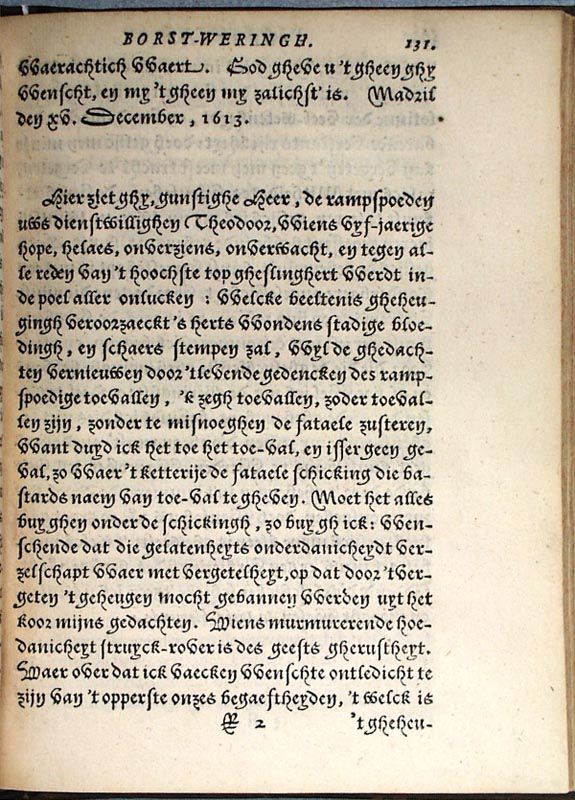 BORST-WERINGH. 131.
VVaerachtich VVaert. God gheve u 't gheen ghy
VVenscht, en my 't gheen my zalichst is. Madril
den xv. December, 1613.
Hier ziet ghy, gunstighe Heer, de rampspoeden
uws dienstwillighen Theodoor, VViens vyf-jaerige
hope, helaes, onverziens, onverwacht, en tegen al-
le reden van 't hoochste top gheslinghert VVerdt in-
de poel aller onlucken : VVelcke beeltenis gheheu-
gingh veroorzaeckt 's herts VVondens stadige bloe-
dingh, en schaers stempen zal, VVyl de ghedach-
ten vernieuwen door 't levende gedencken des ramp-
spoedige toevallen, 'k zegh toevallen, zoder toeval-
len zijn, zonder te misnoeghen de fataele zusteren,
VVant duyd ick het toe het toe-val, en isser geen ge-
val, zo VVaer 't ketterije de fataele schicking die ba-
stards naem van toe-val te gheven. Moet het alles
buyghen onder de schickingh, zo buygh ick: VVen-
schende dat die gelatenheyts onderdanicheydt ver-
zelschapt VVaer met vergetelheyt, op dat door 't ver-
geten 't geheugen mocht gebannen VVerden uyt het
koor mijns gedachten. Wiens murmurerende hoe-
danicheyt struyck-rover is des geests gherustheyt.
Waer over dat ick vaecken VVenschte ontledicht te
zijn van 't opperste onzes begaeftheyden, 't welck is
2 't gheheu-